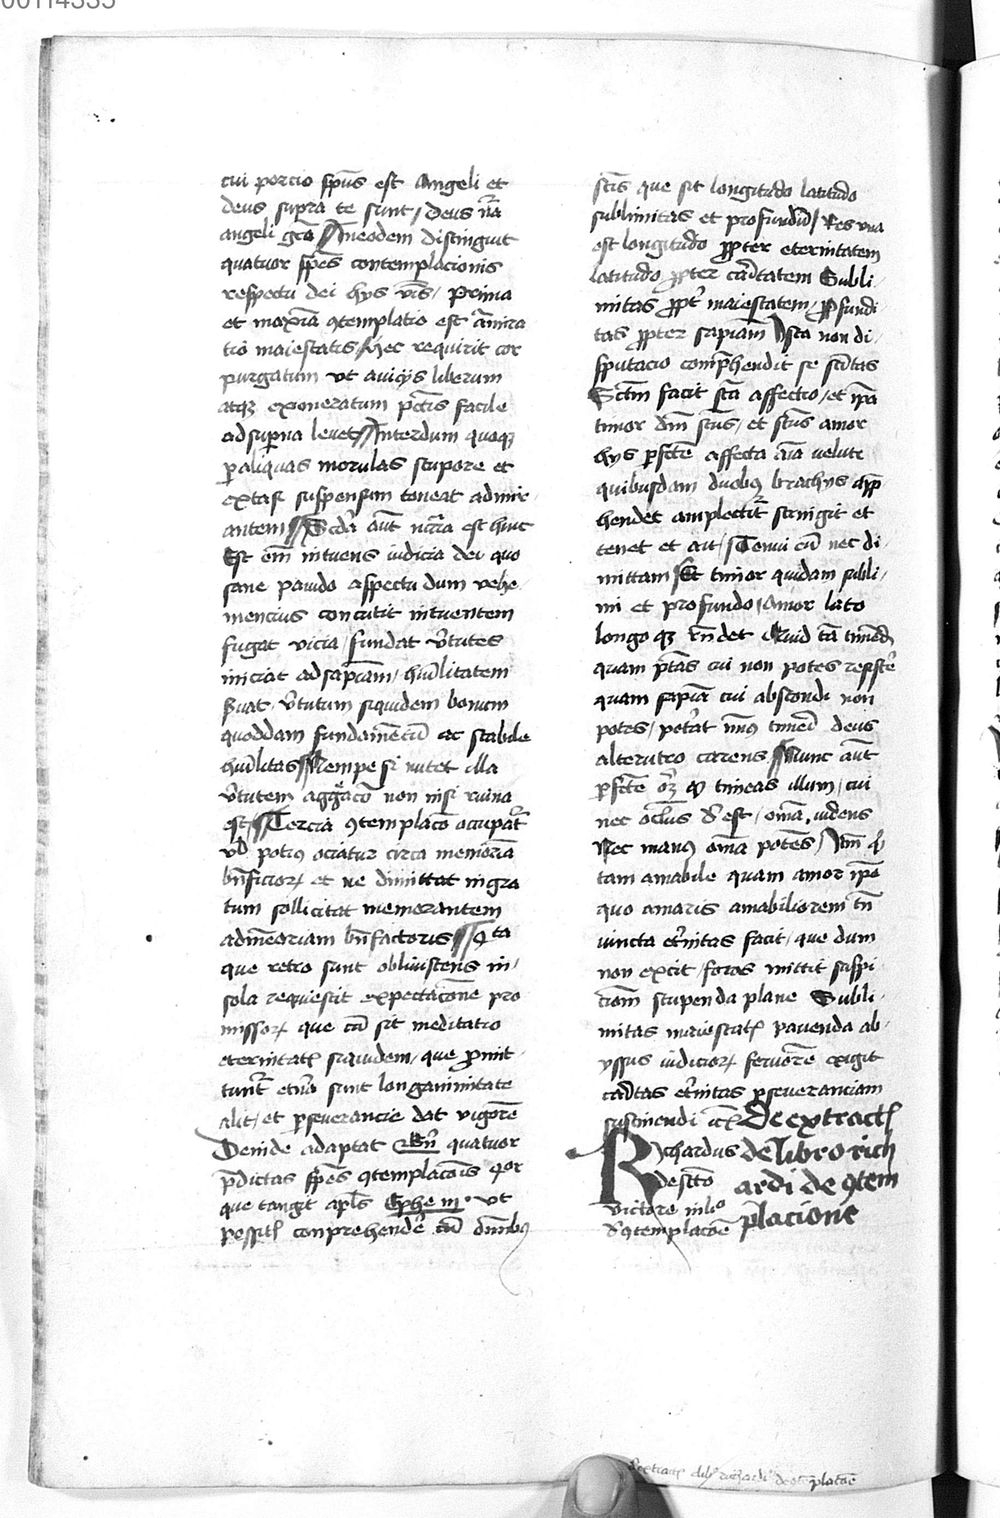 00114335
cui porcio sp̄us est Angeli et
deus supra te sunt / Deus nā
angeli grā // Ineodem distinguit
quatuor sp̄es contemplacionis
respectu dei hys v̄is / Prima
et maxīa ꝯtemplatio est āmira
tiō maiestatis / Hec requirit cor
purgatum vt auicys liberum
atqꝫ exoneratum pctīs facile
ad supͥna leuet // Interdum quoqꝫ
ꝑ aliquas morulas stupore et
extasi suspensum teneat admir
antem // Scd̄a aut̄ ncc̄ria est huic
Est em̄ intuens iudicia dei quo
sane pauido aspectu dum vehe
mencius concutit intuentem
fugat vicia / fundat v̄tutes
iniciat ad sapīam / huīlitatem
ẜuat v̄tutum siquidem bonum
quoddam fundamētū ac stabile
huīlitas // Nempe si nutet illa
v̄tutem aggͣcacō non nisi ruina
est // Tercia ꝯtemplacō occupat͛
vl̄ potiꝰ ociatur circa memoriā
bn̄ficioꝝ et ne dimittat ingra
tum sollicitat memorantem
ad memoriam bn̄factoris // Qͣta
que retro sunt obliuiscens in
sola requiescit expectacōne pro
missoꝝ que cū sit meditatio
eternitatꝭ siquidem / que ꝓmit
tunt͛ et̄na sunt longanimitate
alit / et ꝑseuerancie dat vigorē
Deinde adaptat Bn̄ quatuor
p̄dictas sp̄es ꝯtemplacōis qͣtuor
que tangit apl̄s Ephe iij · vt
possitꝭ conprehendē cū om̄ibꝰ
sctīs que sit longitudo latitudo
sublimitas et profundū / Res vna
est longitudo ꝓpter eternitatem
latitudo ꝓpter caritatem Subli
mitas ꝓpt͛ maiestatem / ꝓfundi
tas ꝓpter sapiam̄ Ista non di
sputacio comp̄hendit se scītas
Sctm̄ facit scā affectio / et ip̄a
timor dn̄i sctūs / et sctūs amor
hys ꝑfcē affecta aīa velut
quibusdam duobꝰ brachys app̄
hendet amplectit͛ stringit et
tenet et ait / Tenui eū nec di
mittam / Et timor quidam subli
mi et profundo / Amor lato
longoqꝫ rn̄det Quid tā timendū
quam ptās cui non potes resistē
quam sapīa cui abscondi non
potes / potat minꝰ timeri deus
alterutro carens // Nunc aut̄
ꝑfcē oꝫ qd̄ timeas illum / cui
nec oclūs deest / omīa videns
Nec manꝰ omīa potēs / Item qd̄
tam amabile quam amor ip̄e
quo amaris amabiliorem tn̄
iuncta et̄nitas facit / que dum
non excit / foras mittit suspi
cōm stupenda plane Subli
mitas maiestatꝭ pauenda ab
yssus iudicioꝝ feruorē exigit
caritas et̄nitas ꝑseueranciam
sustinendi etc̄ De extractꝭ
Richardus de libro rich
de scō ardi de ꝯtem
victore in libº placione
de ꝯtemplacōe
De extractꝭ libri richardi de ꝯtemplacōe